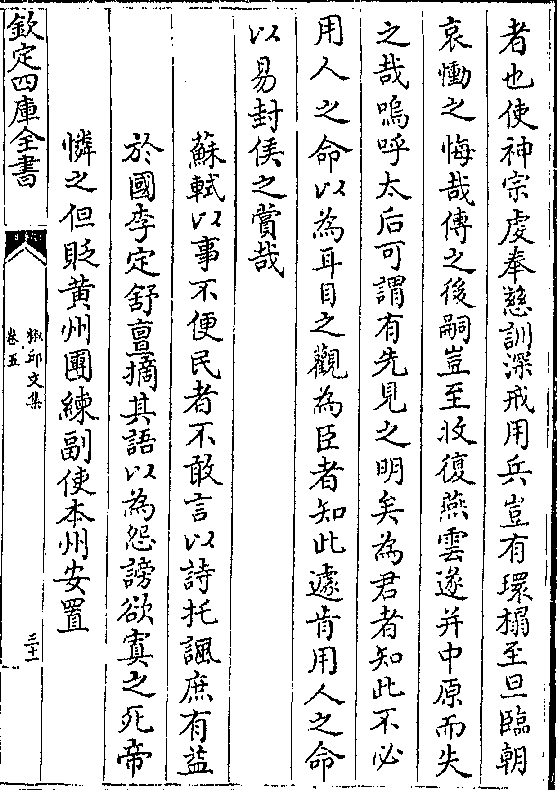 者也使神宗虔奉慈訓深戒用兵豈有環榻至旦臨朝
哀慟之悔哉傳之後嗣豈至收復燕雲遂并中原而失
之哉嗚呼太后可謂有先見之明矣為君者知此不必
用人之命以為耳目之觀為臣者知此遽肯用人之命
以易封侯之賞哉
蘇軾以事不便民者不敢言以詩托諷庶有益
於國李定舒亶摘其語以為怨謗欲寘之死帝
憐之但貶黄州團練副使本州安置
欽定四庫全書
椒邱文集
卷五
三十一